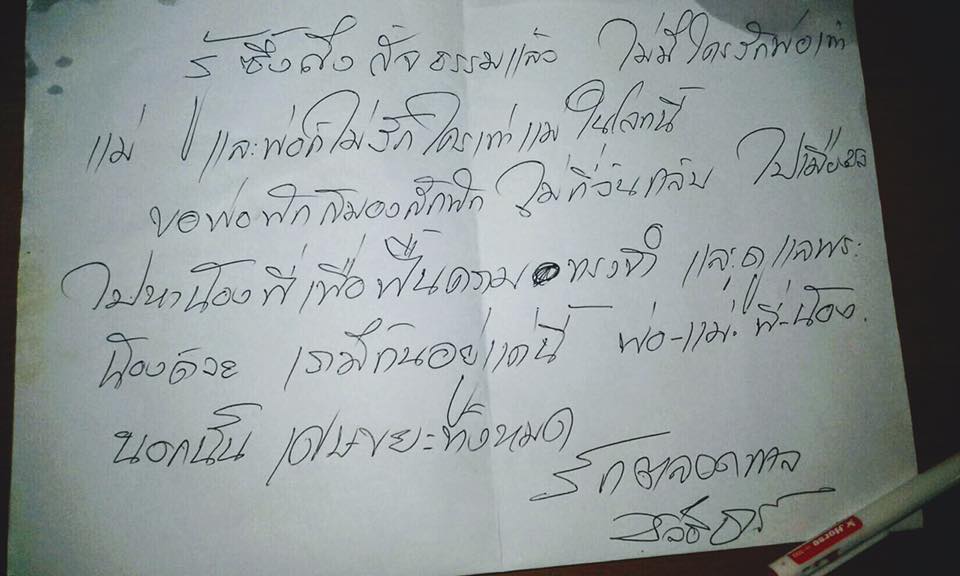 รู้ซึ้งถึงสัจธรรมแล้ว ไม่มีใครรักพ่อเท่า
แม่ และพ่อก็ไม่รักใครเท่าแม่ ในโลกนี้
ขอพ่อพักสมองสักพัก ไม่กี่วันกลับ ไปเมืองชล
ไปหาน้องพี่เพื่อฟื้นความทรงจำ และดูแลพระ
น้องด้วย เรามีกันอยู่แค่นี้ พ่อ-แม่. พี่-น้อง.
นอกนั้น เศษขยะทั้งหมด
รักตลอดกาล
Horse